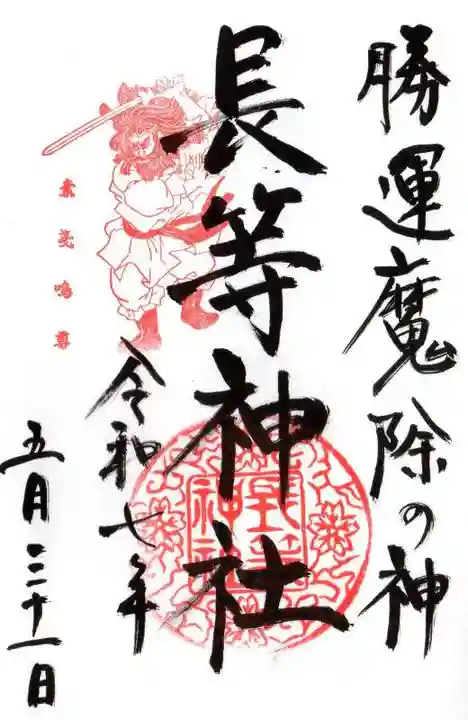 勝運魔除の神
長等神社
長等
神社
素戔嗚尊
令和七年
五月三十一日